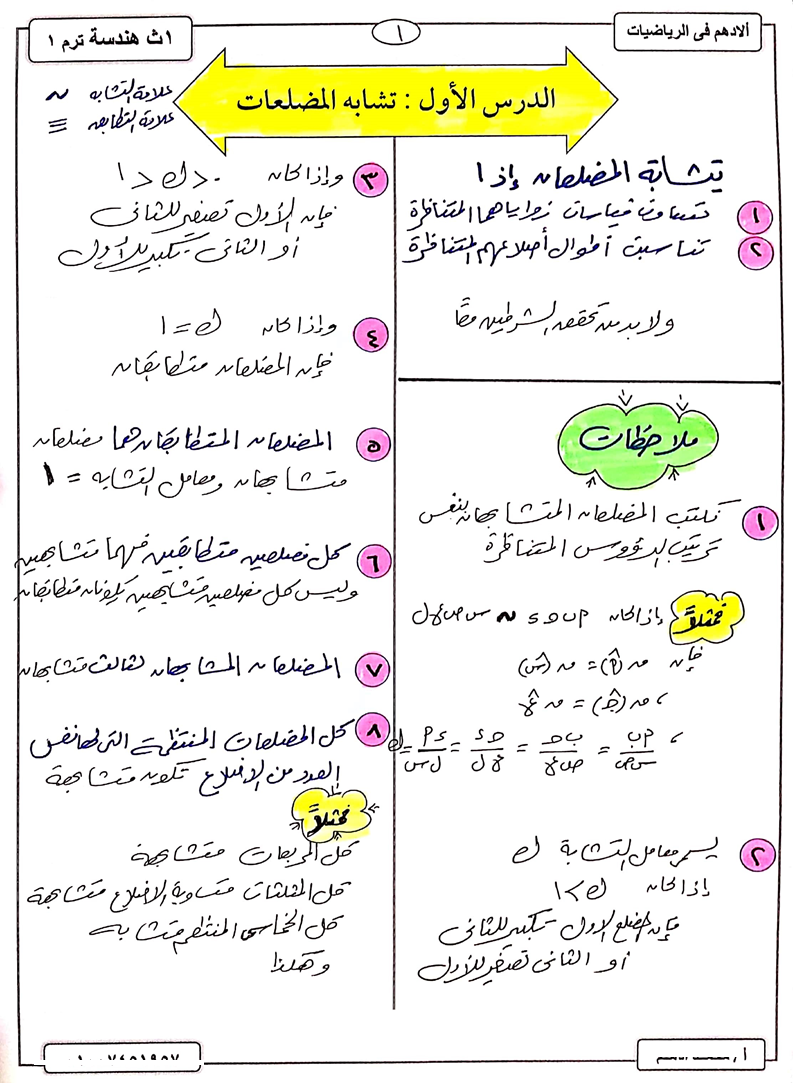 ألادهم فى الرياضيات
١
١ث هندسة ترم ١
الدرس الأول : تشابه المضلعات
علامة التشابه ~
علامة التطابق ≡
يتشابة المضلعان إذا
١ تساوت قياسات زواياهما المتناظرة
٢ تناسبت أطوال أضلاعهم المتناظرة
ولابد من تحقق الشرطين معًا
ملاحظات
١ نكتب المضلعان المتشابهان بنفس
ترتيب الرؤوس المتناظرة
فمثلاً إذا كان ٢ب حـ ء ~ س ص ع ل
فإن ق(٢̂) = ق(س̂)
، ق(ب̂) = ق ع̂
، ٢ب/س ص = ب حـ/ص ع = حـ ء/ع ل = ء ٢/ل س = ك
٢ يسمى معامل التشابة ك
إذا كان ك > ١
فإن المضلع الاول تكبير للثانى
أو الثانى تصغير للأول
٣ وإذا كان ٠ < ك < ١
فإن الأول تصغير للثانى
أو الثانى تكبير للأول
٤ وإذا كان ك = ١
فإن المضلعان متطابقان
٥ المضلعان المتطابقان هما مضلعان
متشابهان ومعامل التشابه = ١
٦ كل مضلعين متطابقين فهما متشابهين
وليس كل مضلعين متشابهين يكونان متطابقان
٧ المضلعان المشابهان لثالث متشابهان
٨ كل المضلعات المنتظمة التى لها نفس
العدد من الاضلاع تكون متشابهة
فمثلاً
كل المربعات متشابهة
كل المثلثات متساوية الاضلاع متشابهة
كل الخماسى المنتظم متشابه
وهكذا